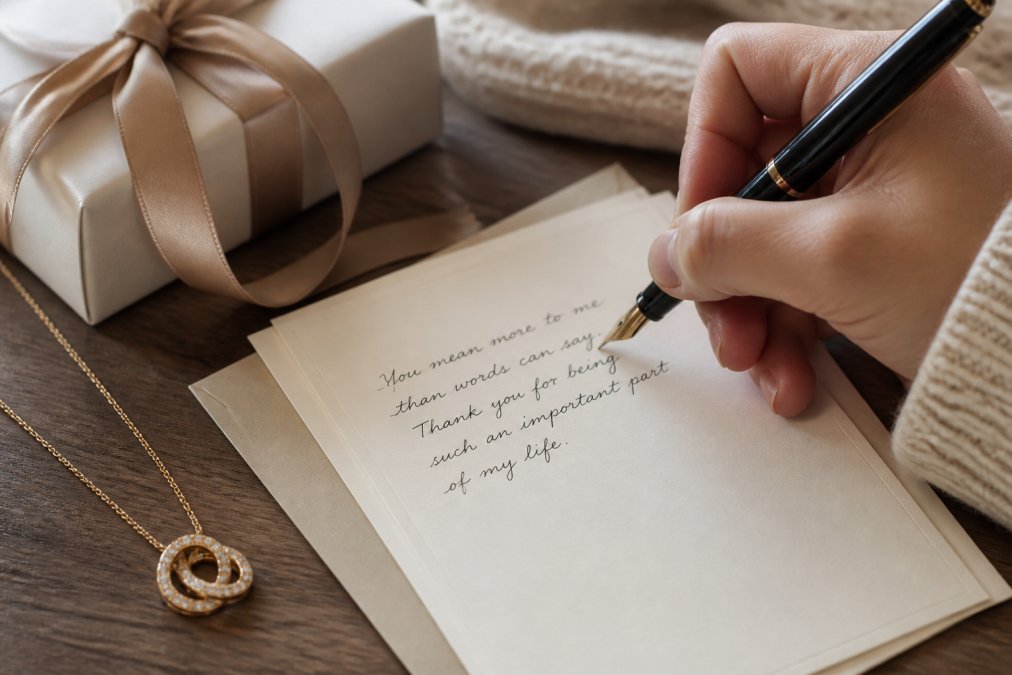 You mean more to me
than words can say.
Thank you for being
such an important part
of my life.